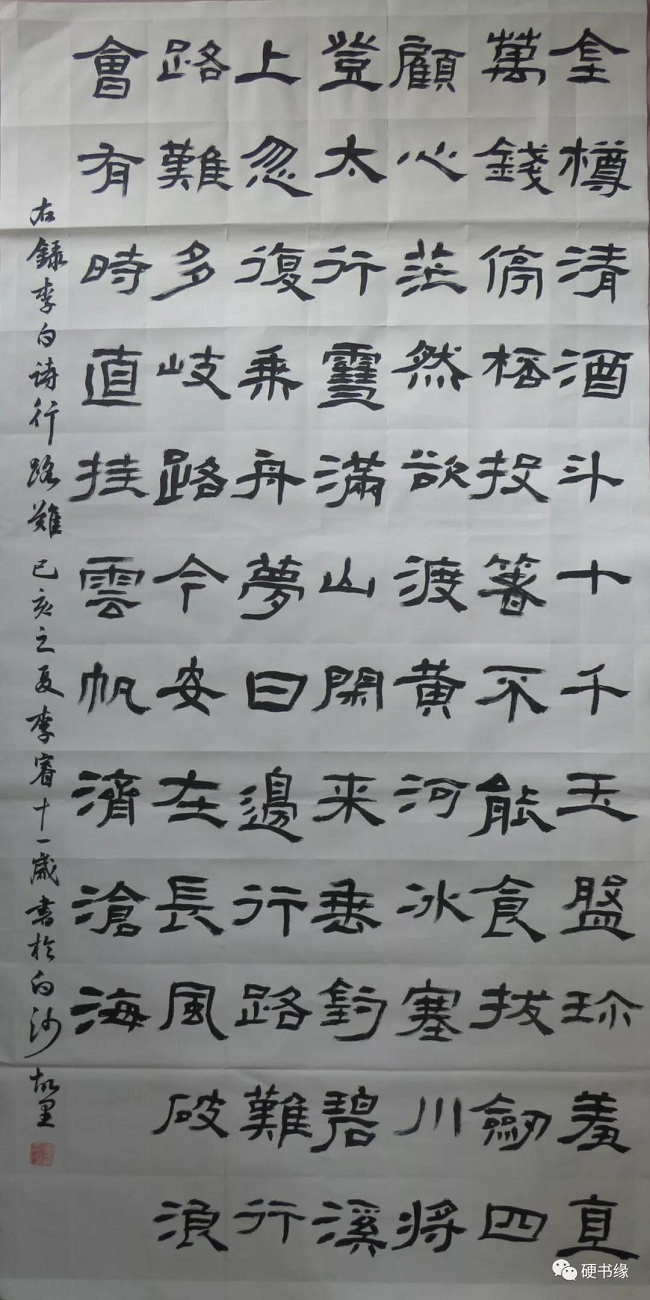 金樽清酒斗十千玉盤珎羞直
萬錢停桮投箸不能食拔劔四
顧心茫然欲渡黄河冰塞川將
登太行雪滿山閑来垂釣碧溪
上忽復乘舟夢日邊行路難行
路難多岐路今安在長風破浪
會有時直挂雲帆濟滄海
右録李白诗行路难己亥之夏李睿十一歲書於白沙故里
硬书缘